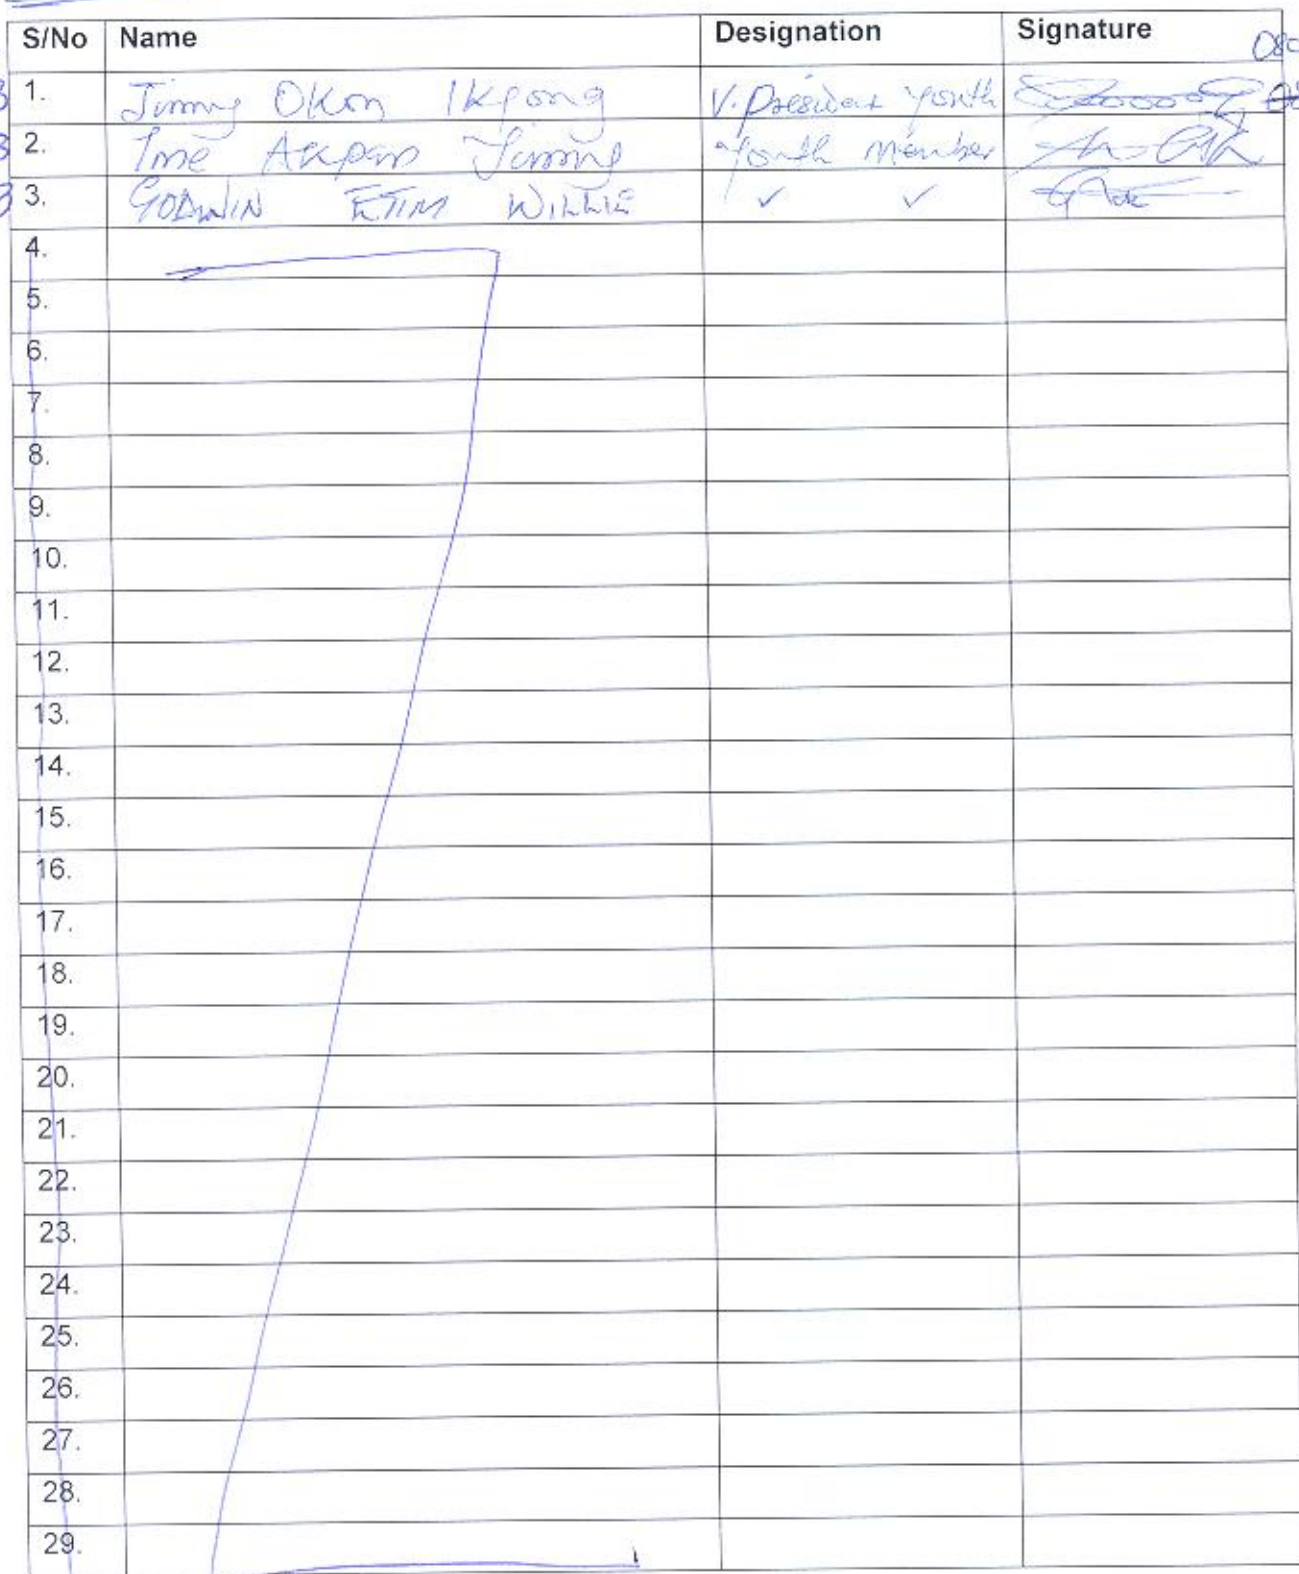 S/No Name Designation Signature
080
1. Jimmy Okon Ikpong V. President youth
2. Ime Akpan Jimmy Youth Member
3. GODWIN ETIM WILLIE ✓ ✓
4.
5.
6.
7.
8.
9.
10.
11.
12.
13.
14.
15.
16.
17.
18.
19.
20.
21.
22.
23.
24.
25.
26.
27.
28.
29.